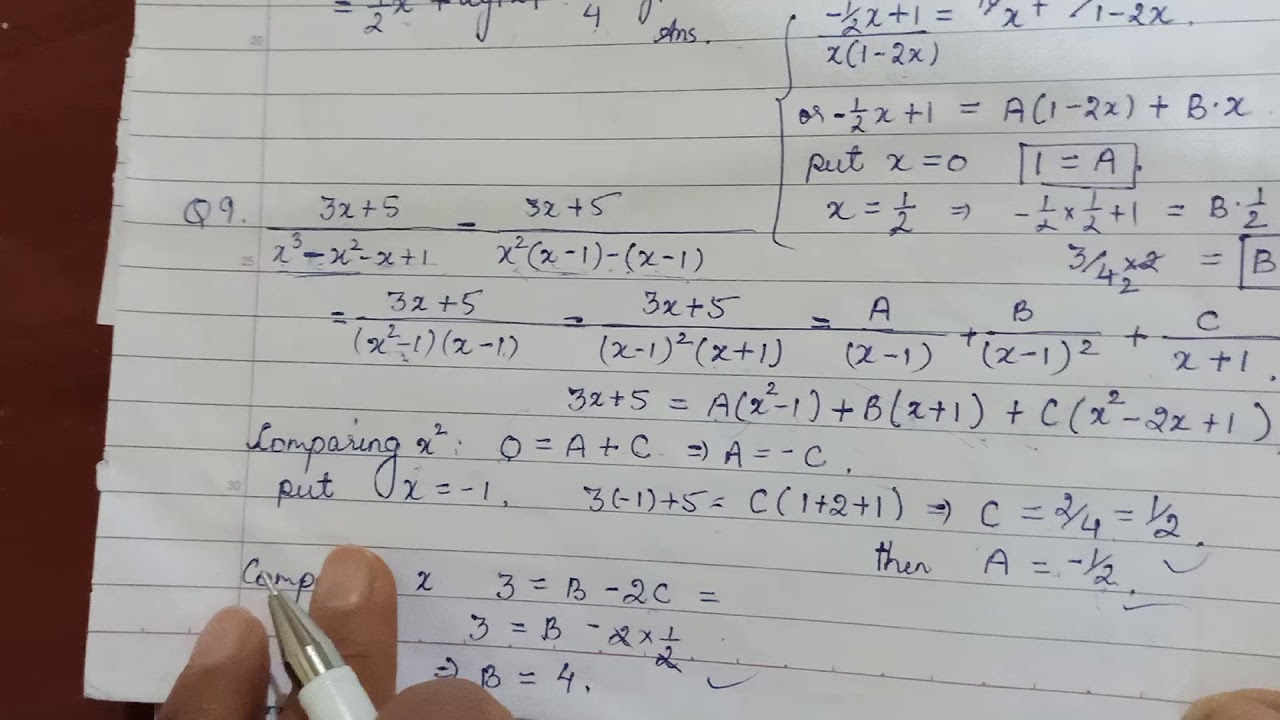 = 1/2 x + 4
Ans.
(-1/2 x+1)/(x(1-2x)) = /x + /1-2x.
or -1/2 x+1 = A(1-2x) + B·x
put x=0 1 = A.
x = 1/2 ⇒ -1/2 × 1/2 + 1 = B·1/2
3/4 × 2 = B
20
Q 9. (3x+5)/(x³-x²-x+1) = (3x+5)/(x²(x-1)-(x-1))
25
= (3x+5)/((x²-1)(x-1)) = (3x+5)/((x-1)²(x+1)) = A/(x-1) + B/(x-1)² + C/(x+1).
3x+5 = A(x²-1) + B(x+1) + C(x²-2x+1)
Comparing x²: 0 = A + C ⇒ A = -C.
30
put x = -1, 3(-1)+5 = C(1+2+1) ⇒ C = 2/4 = 1/2.
then A = -1/2.
Comp x 3 = B - 2C =
3 = B - 2×1/2
⇒ B = 4.